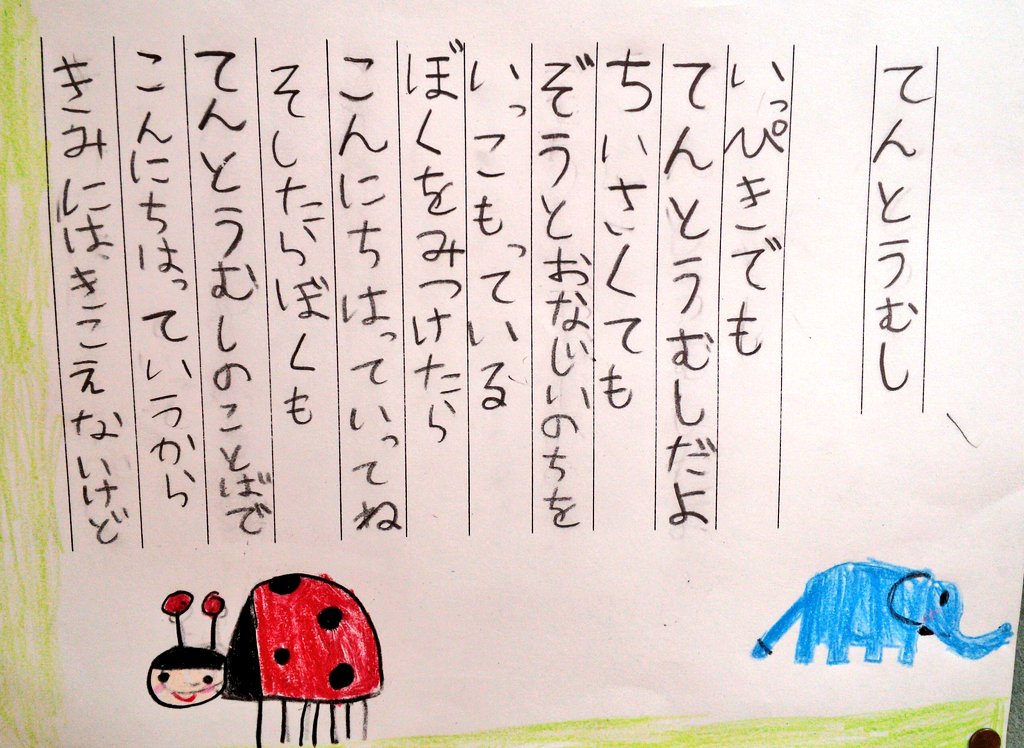 てんとうむし
いっぴきでも
てんとうむしだよ
ちいさくても
ぞうとおなじいのちを
いっこもっている
ぼくをみつけたら
こんにちはっていってね
そしたらぼくも
てんとうむしのことばで
こんにちはっていうから
きみにはきこえないけど